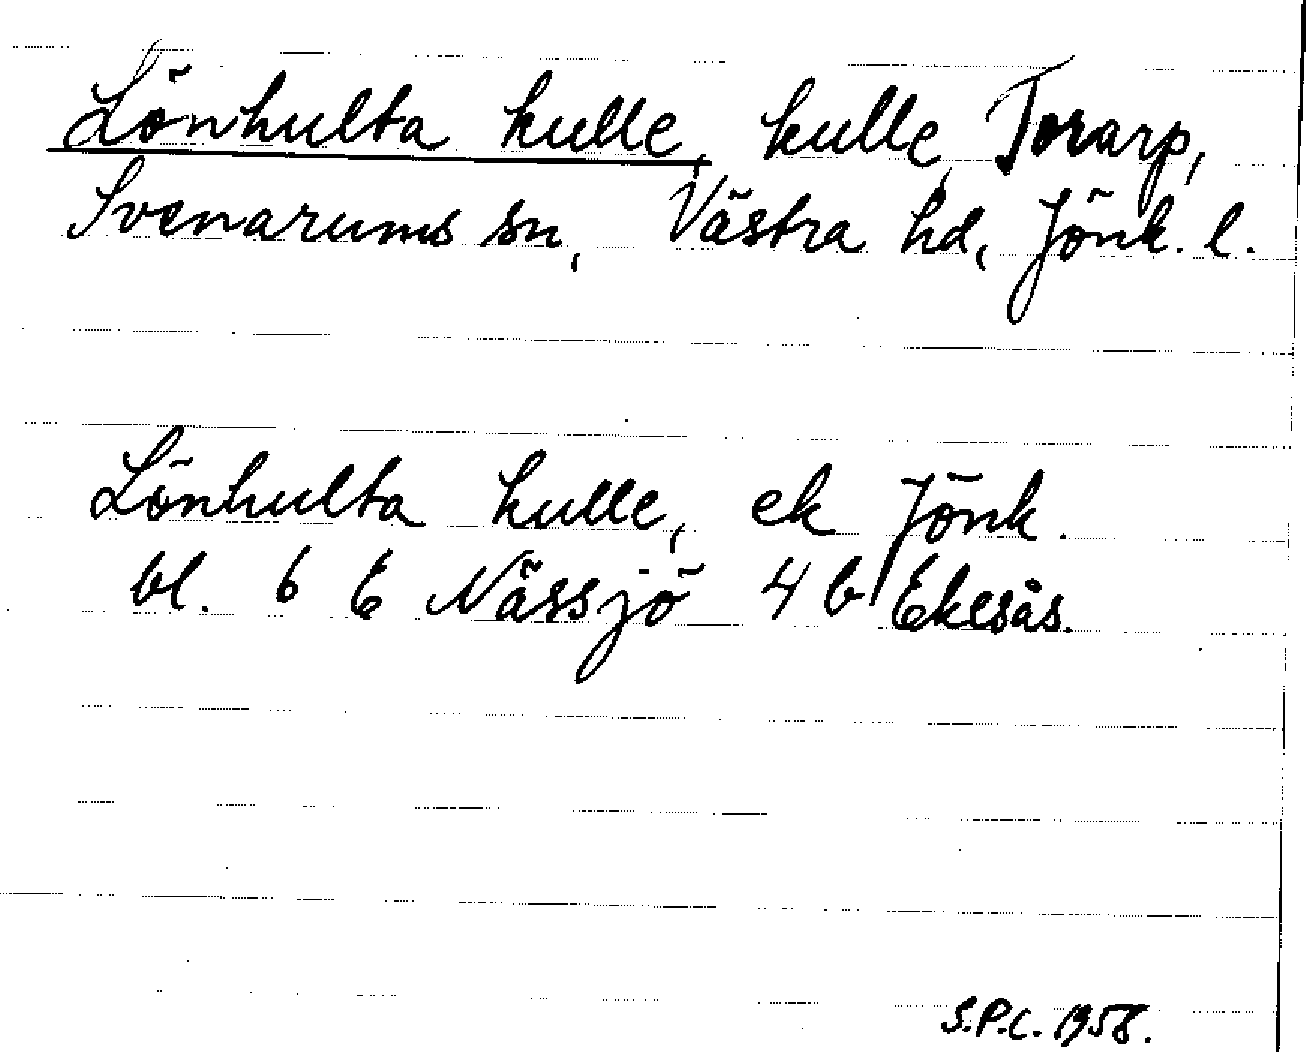 Lönhulta kulle, kulle, Torarp,
Svenarums sn, Västra hd, Jönk. l.
Lönhulta kulle, ek Jönk.
bl. 6 E Nässjö 4 b Ekesås.
S.P.C. 1958.